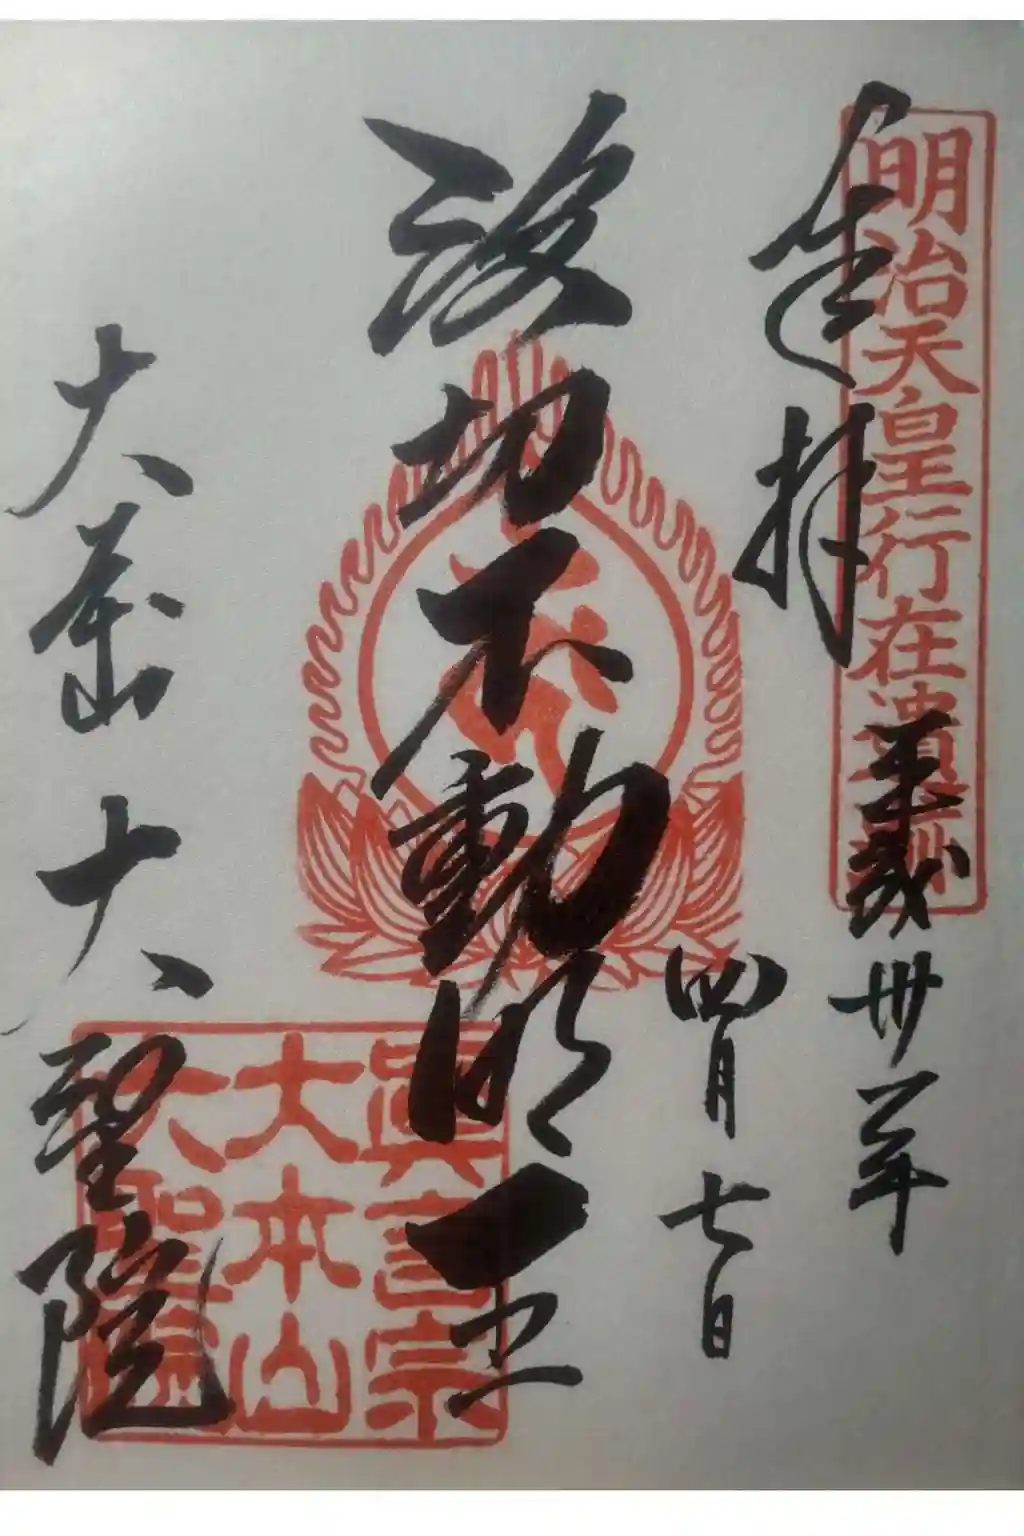 明治天皇行在遺跡
奉拝
平成卅一年
四月七日
波切不動明王
大本山大聖院
眞言宗
大本山
大聖院